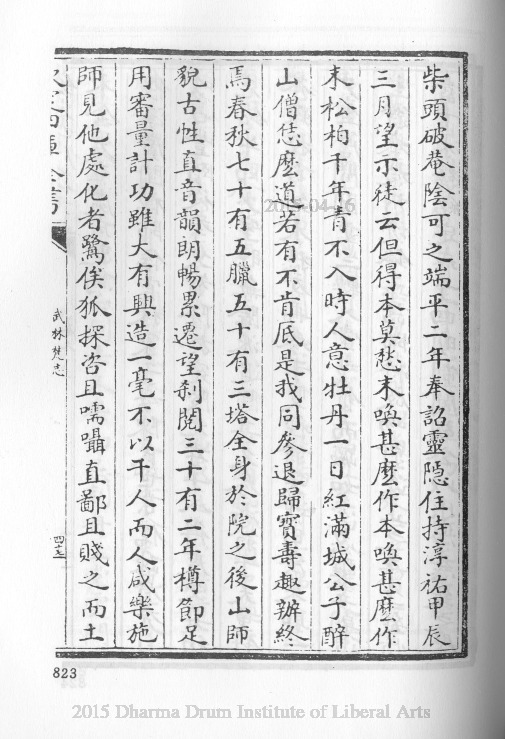 柴頭破菴陰可之端平二年奉詔靈隱住持淳祐甲辰
三月望示徒云但得本莫愁末喚甚麼作本喚甚麼作
末松柏千年青不入時人意牡丹一日紅滿城公子醉
山僧恁麼道若有不肯底是我同參退歸寳壽趣辦終
焉春秋七十有五臘五十有三塔全身於院之後山師
貌古性直音韻朗暢累遷望刹閱三十有二年樽節足
用審量計功雖大有興造一毫不以干人而人咸樂施
師見他處化者鷺俟狐探咨且嚅囁直鄙且賤之而土
武林梵志
823
2015 Dharma Drum Institute of Liberal Arts